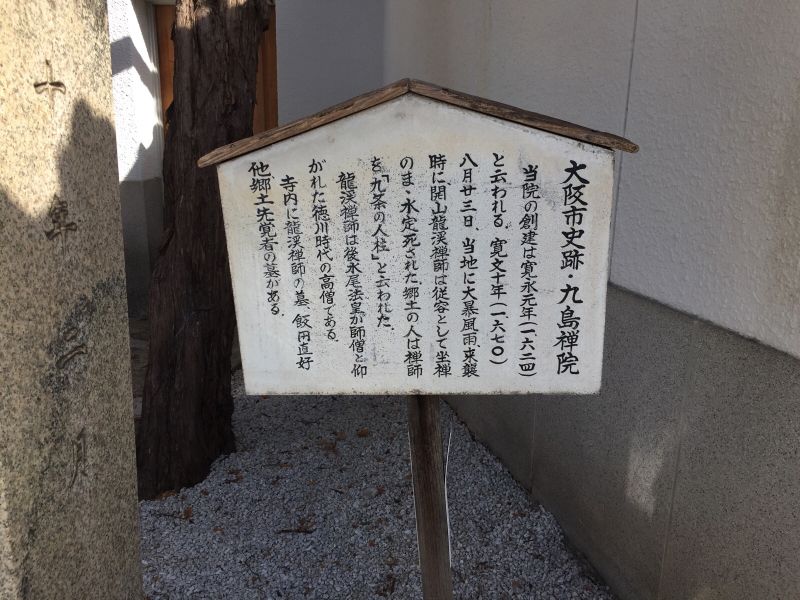 大阪市史跡・九島禅院
当院の創建は寛永元年(一六二四)
と云われる 寛文十年(一六七〇)
八月廿三日、当地に大暴風雨、来襲
時に、開山龍渓禅師は従容として坐禅
のま丶水定死された、郷土の人は禅師
を「九条の人柱」と云われた、
龍渓禅師は後水尾法皇が師僧と仰
がれた徳川時代の高僧である、
寺内に龍渓禅師の墓 飯田直好
他郷土先覚者の墓がある、